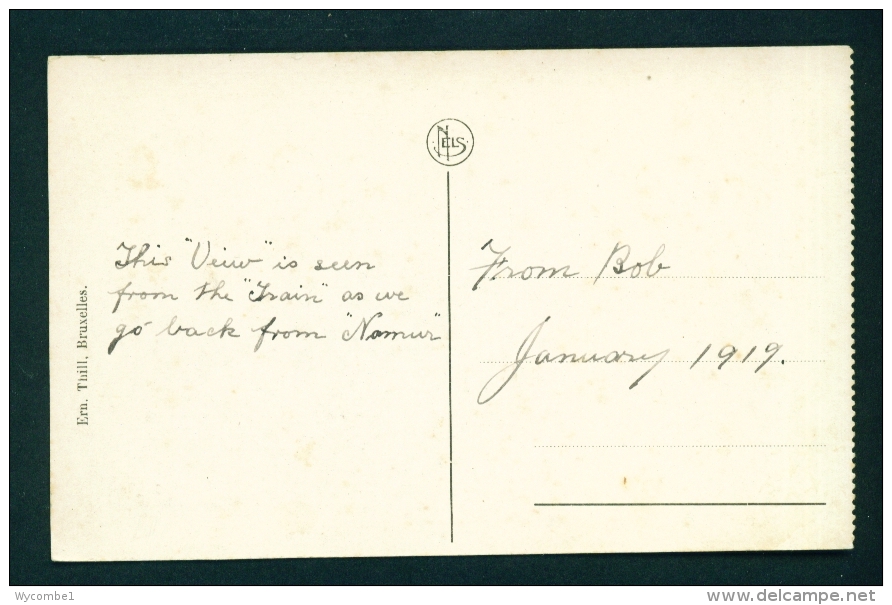 NELS
This "Veiw" is seen
from the "Train" as we
go back from "Namur"
From Bob
January 1919.
Ern. Thill, Bruxelles.
Wycombe1
www.delcampe.net